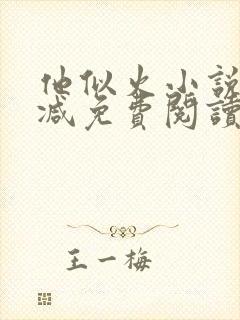 他似火小說
减免費閱讀
王一梅